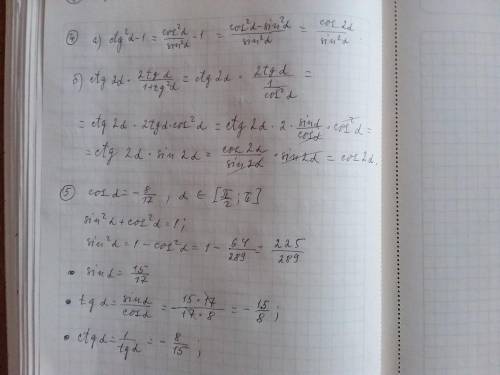 ④ а) ctg²α-1 = cos²α/sin²α - 1 = (cos²α-sin²α)/sin²α = cos 2α/sin²α
б) ctg 2α · 2tg α/(1+tg²α) = ctg 2α · 2tg α/(1/cos²α) =
= ctg 2α · 2tg α · cos²α = ctg 2α · 2 · sin α/cos α · cos²α =
= ctg 2α · sin 2α = cos 2α/sin 2α · sin 2α = cos 2α.
⑤ cos α = -8/17, α ∈ [π/2; π]
sin²α + cos²α = 1;
sin²α = 1 - cos²α = 1 - 64/289 = 225/289
• sin α = 15/17
• tg α = sin α/cos α = -(15·17)/(17·8) = -15/8;
• ctg α = 1/tg α = -8/15;